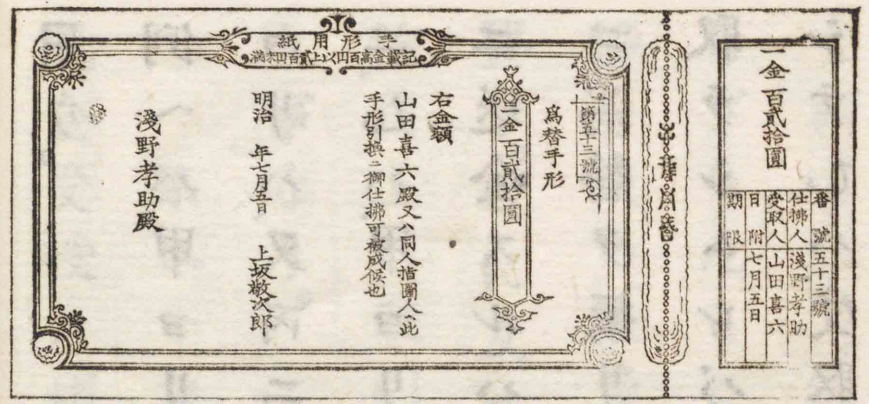 一金百貳拾圓
番號 五十三號
仕拂人 淺野孝助
受取人 山田喜六
日附 七月五日
期限
手形用紙
記載金高百円以上貳百円未満
第五十三號
爲替手形
一金百貳拾圓
右金額
山田喜六殿又ハ同人指圖人ヘ此
手形引換ニ御仕拂可被成候也
明治 年七月五日
上坂敬次郎
淺野孝助殿